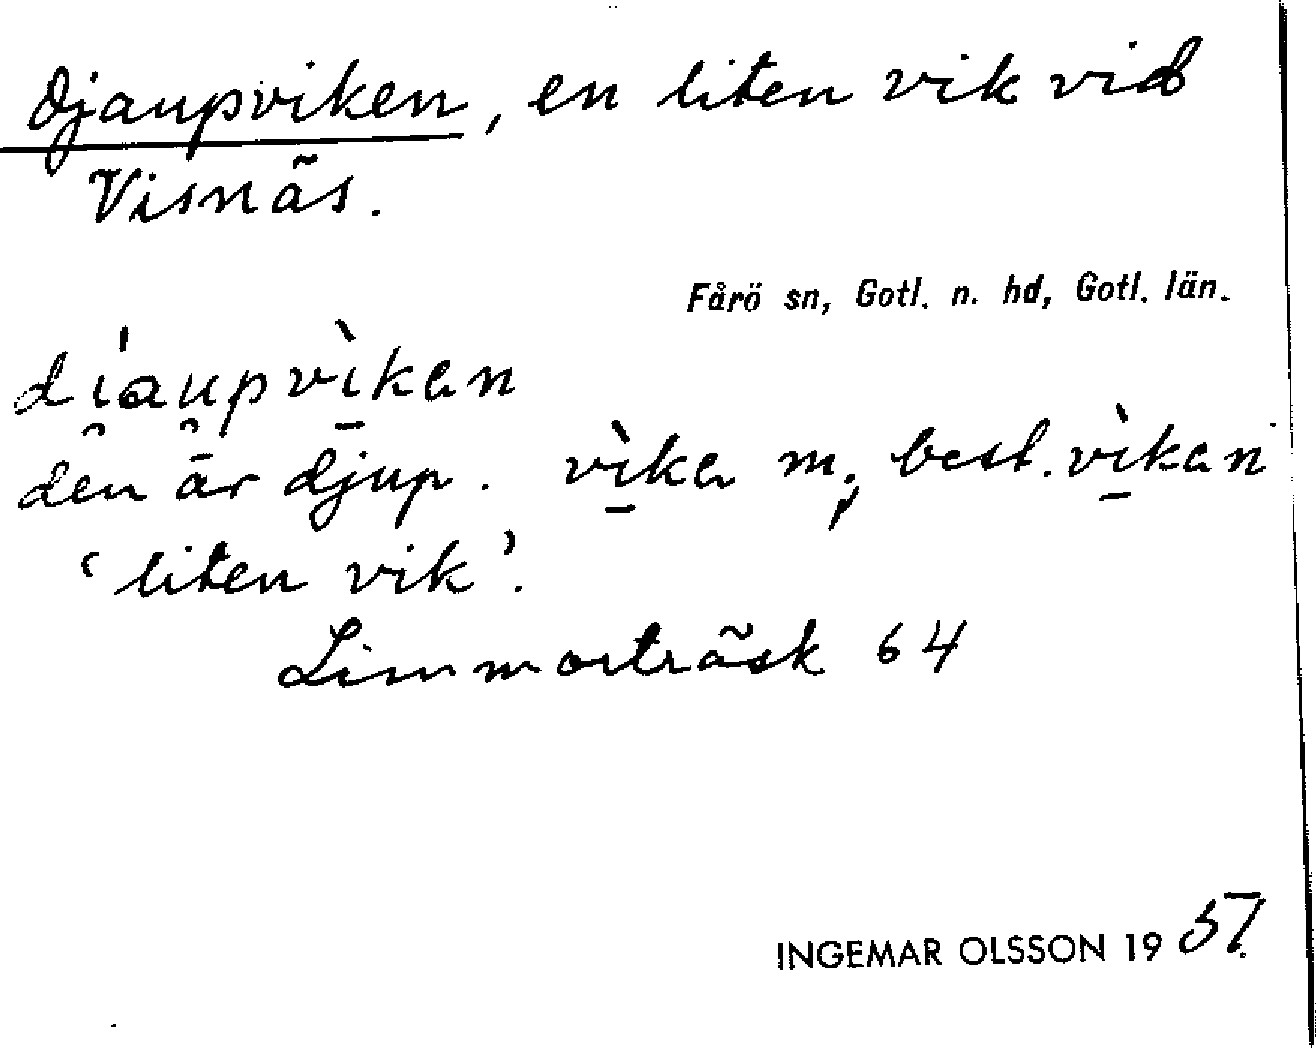 Djaupviken, en liten vik vid
Visnäs.
Fårö sn, Gotl. n. hd, Gotl. län.
di̯áu̯pvì̱kan
den är djup. vì̱ka m; best. vì̱kan
‘liten vik’.
Limmorträsk 64
INGEMAR OLSSON 1957.